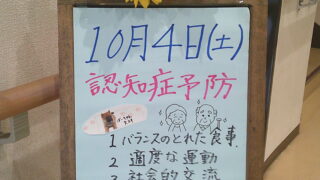 10月4日(土)
認知症予防
1 バランスのとれた食事
2 適度な運動
3 社会的交流